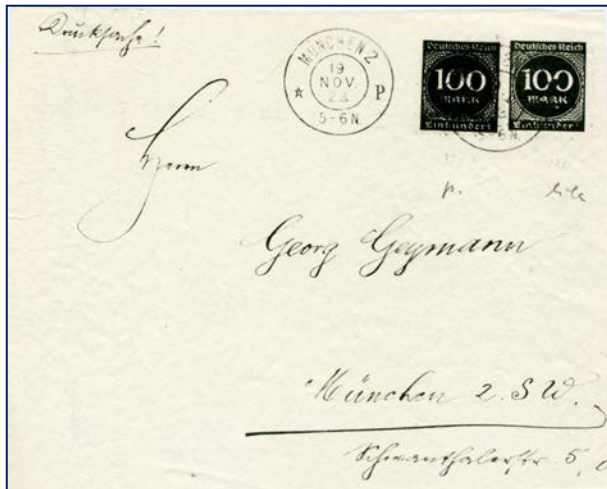 Drucksache!
MÜNCHEN 2
19
NOV.
23
5-6 N
P
Deutsches Reich
100
MARK
Einhundert
Deutsches Reich
100
MARK
Einhundert
5-6 N.
Herrn
Georg Geymann
München 2. SW.
Schwanthalerstr. 5